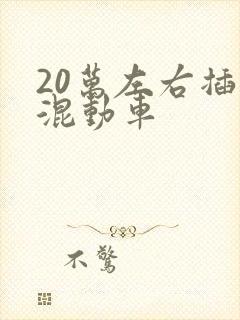 20萬左右插
混動車
不驚